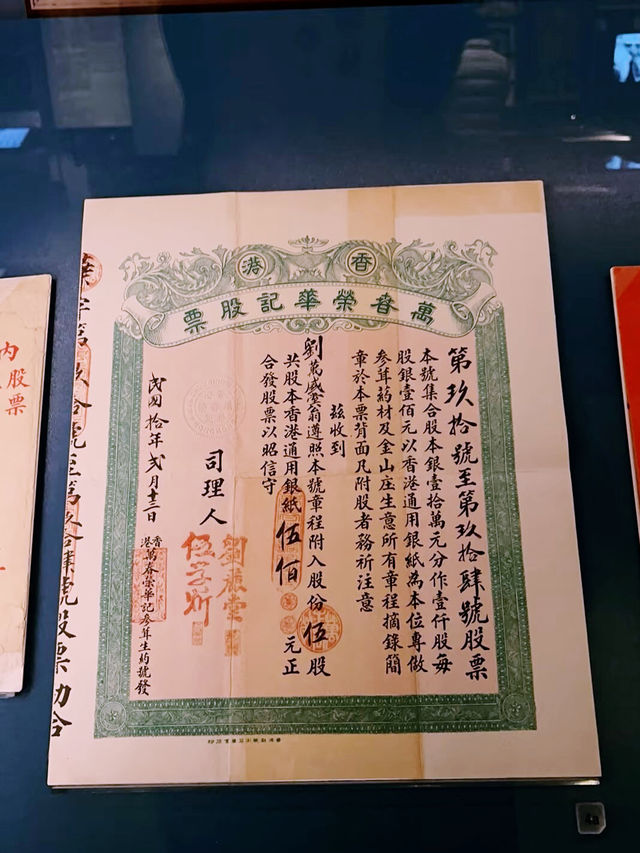 香港
萬春榮華記股票
第玖拾號至第玖拾肆號股票
本號集合股本銀壹拾萬元分作壹仟股每
股銀壹佰元以香港通用銀紙為本位專做
參茸葯材及金山庄生意所有章程摘錄簡
章於本票背面凡附股者務祈注意
茲收到
劉萬盛堂翁遵照本號章程附入股份伍股
共股本香港通用銀紙伍佰元正
合發股票以昭信守
司理人
劉
民國拾年弍月十三日
香港萬春榮華記參茸生葯號發
內股票
4a